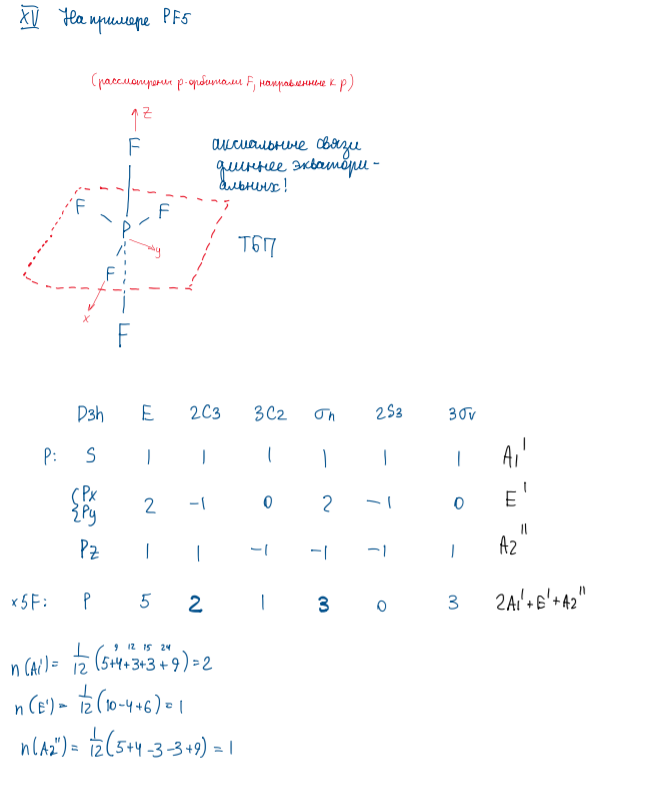 XV На примере PF5
(рассмотрены p-орбитали F, направленные к P)
z
F
аксиальные связи
длиннее экватори-
альных!
F F
P
y
ТБП
F
x
F
D3h E 2C3 3C2 σh 2S3 3σv
P: S 1 1 1 1 1 1 A1'
{Px
{Py 2 -1 0 2 -1 0 E'
Pz 1 1 -1 -1 -1 1 A2''
x5F: P 5 2 1 3 0 3 2A1'+E'+A2''
9 12 15 24
n(A1')= 1/12 (5+4+3+3+9)=2
n(E')= 1/12 (10-4+6)=1
n(A2'')= 1/12 (5+4-3-3+9)=1